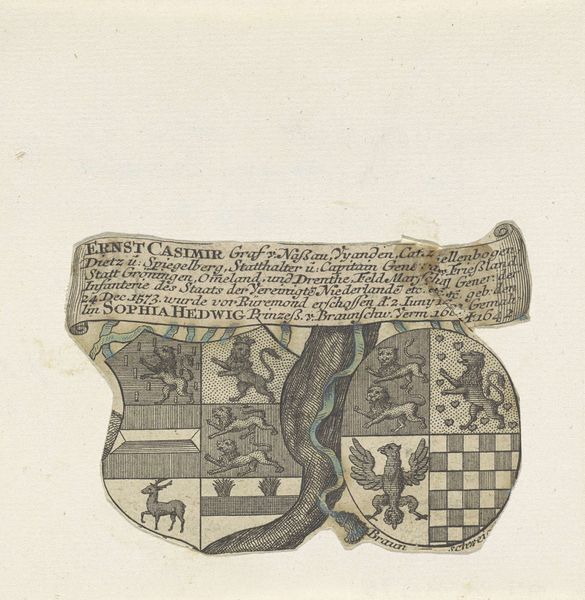 ERNST CASIMIR Graf v. Naßau, Vyanden, Catzellenboge
Dietz ü. Spiegelberg, Statthalter ü. Capitain Gene v. Frießland
Statt Gröningen, Omeland, und Drenthe, Feld Marschall General der
Infanterie des Staats der Vereinigtē Niederlandē etc. etc. geb. den
24 Dec. 1573. wurde vor Rüremond erschoßen d. 2 Iuny Gemah
lin SOPHIA HEDWIG Prinzeß. v. Braunschw. Verm. 164
Braun schwei